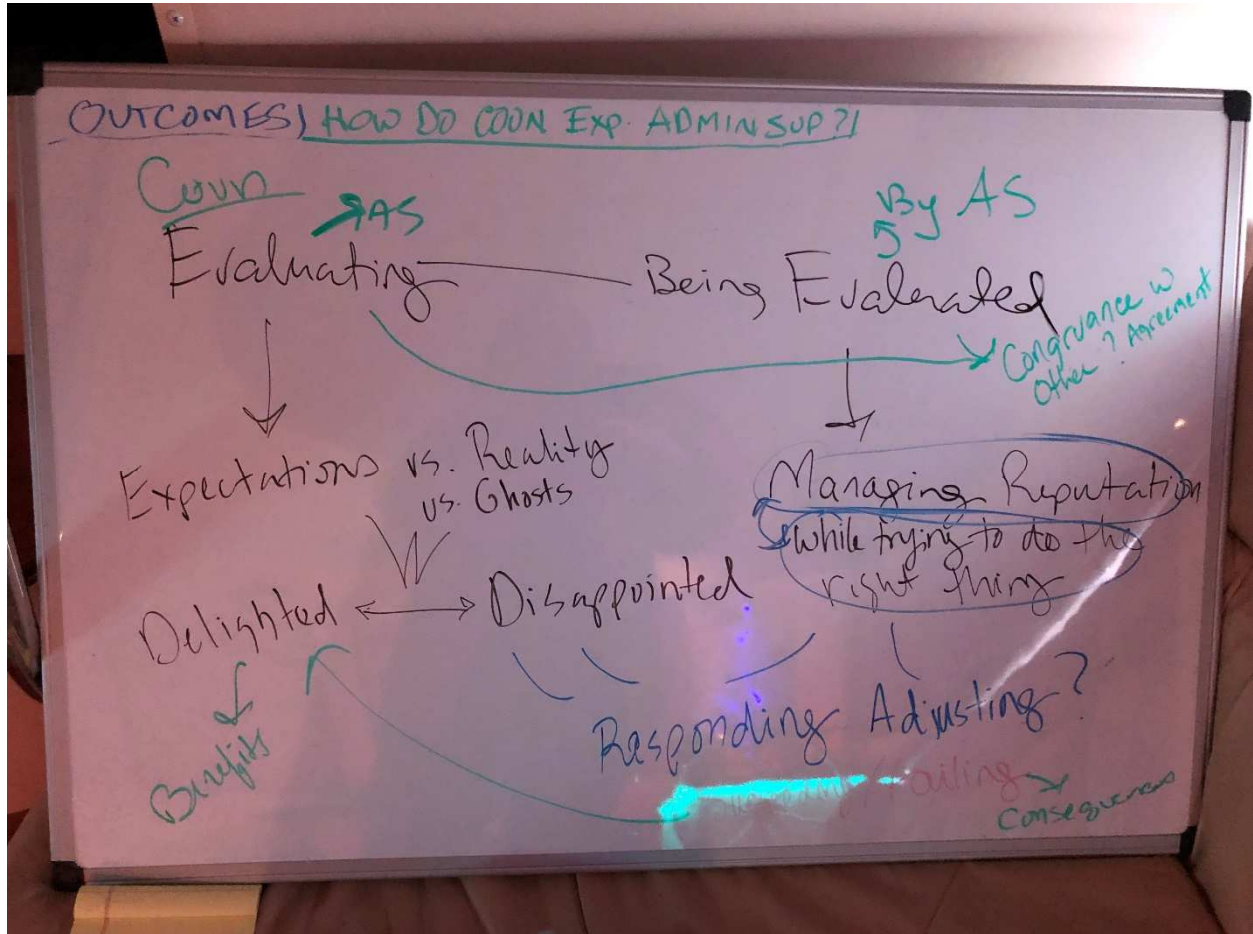 OUTCOMES) HOW DO COUN EXP. ADMIN SUP?/
Coun
AS
By AS
Evaluating
Being Evaluated
Congruance w
Other? Agreement
Expectations vs. Reality
vs. Ghosts
Managing Reputation
while trying to do the
right thing
Delighted
Disappointed
Responding Adjusting?
Benefits
/Failing
Consequences